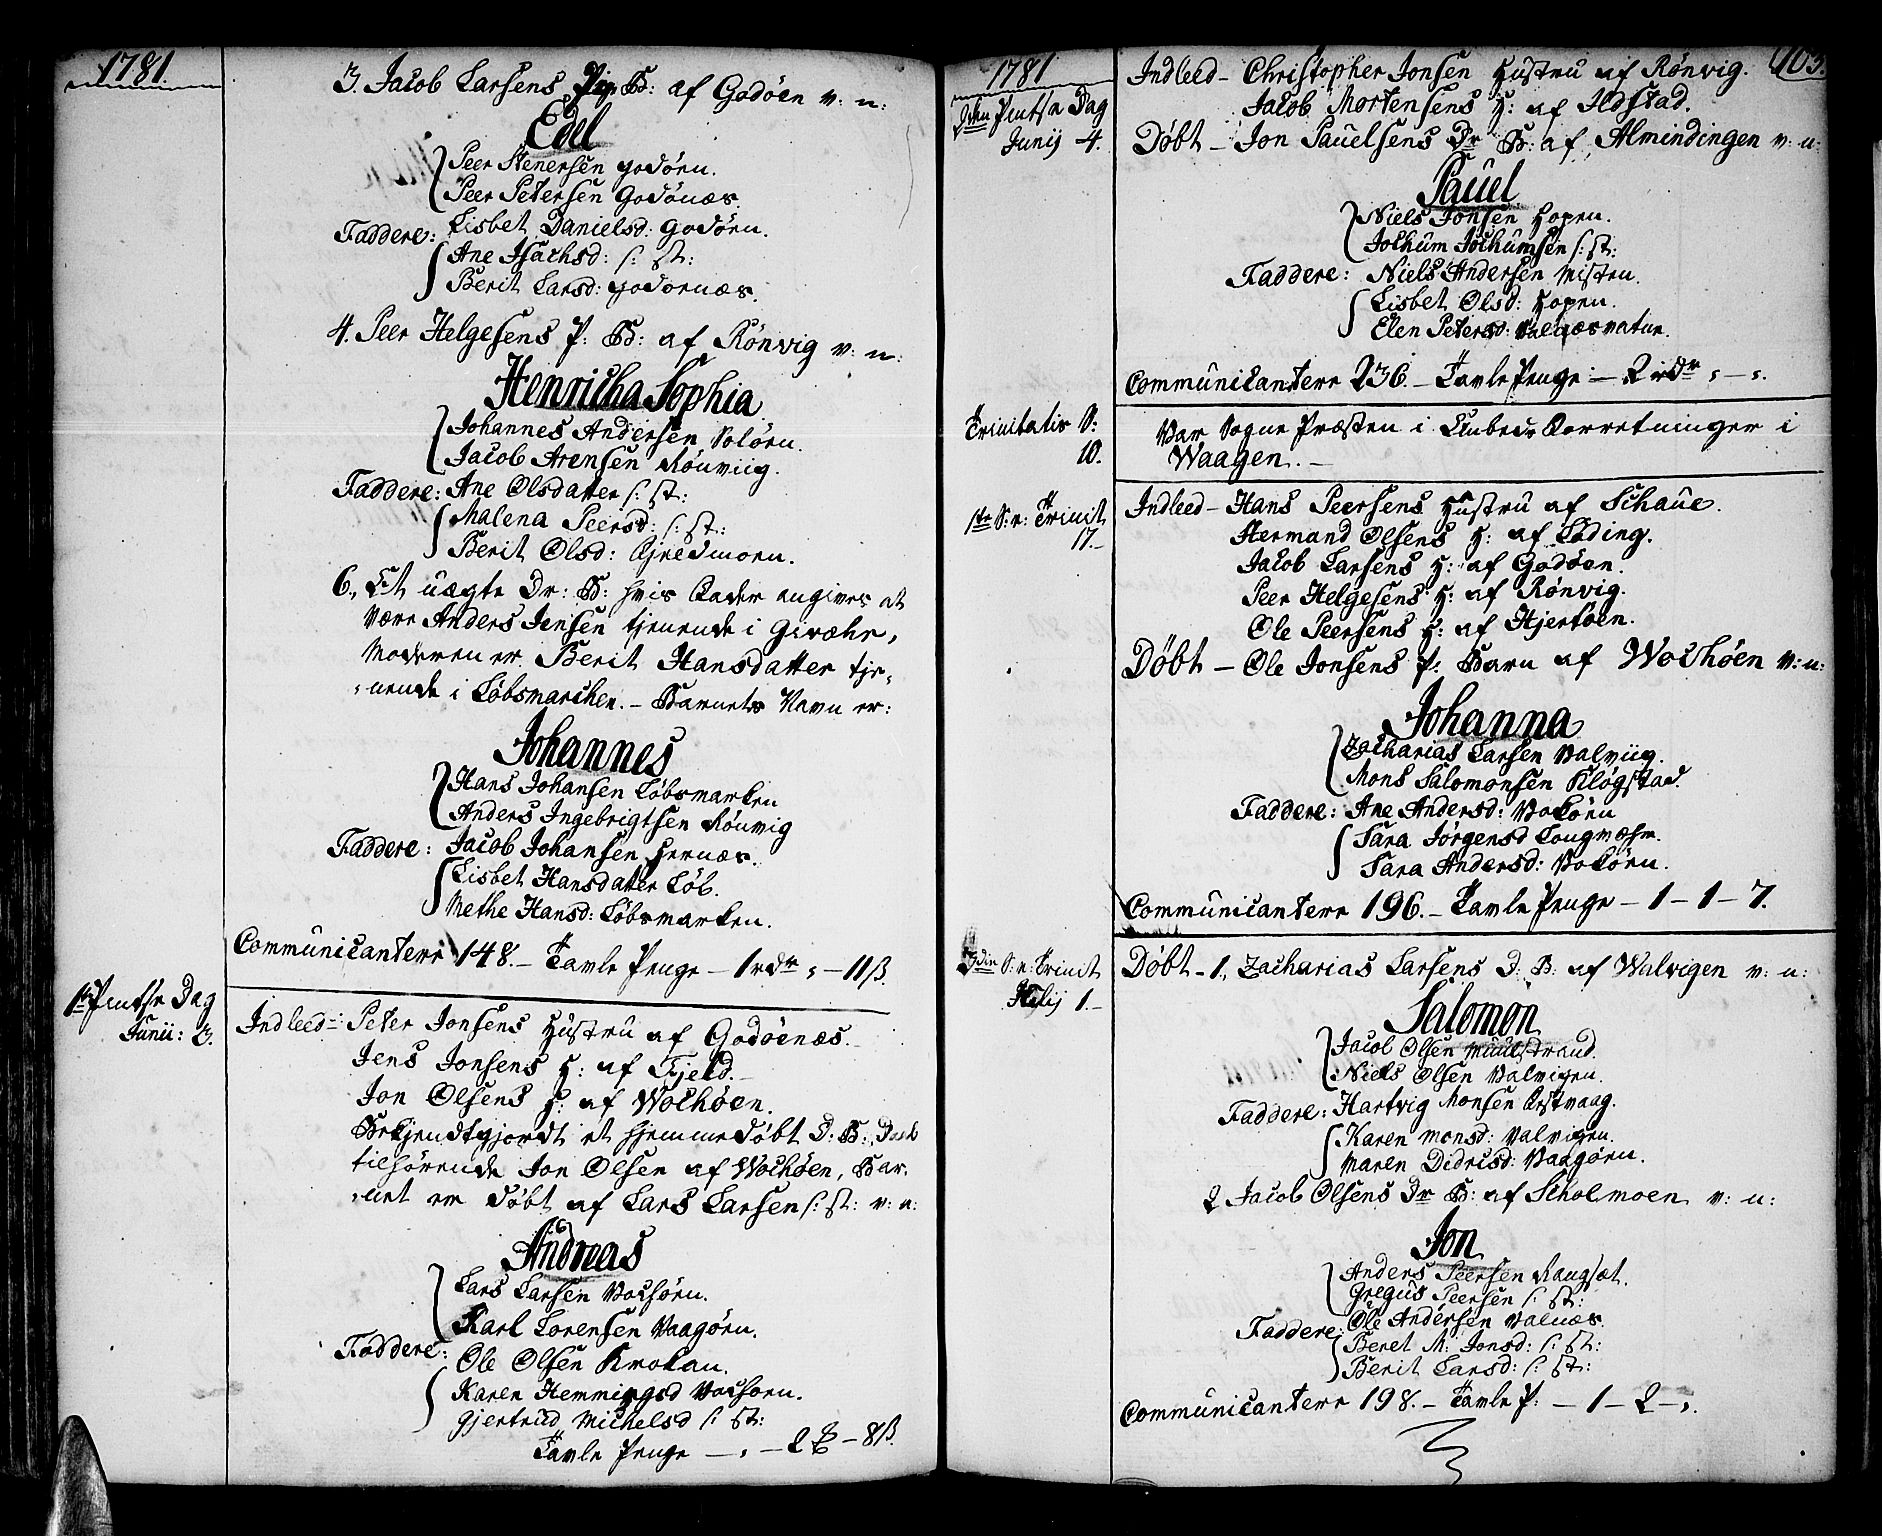 1781.
3. Jacob Larsens Pig. B: af Godöen v: n:
Edel
Peer Stenersen Godöen.
Peer Petersen Godönæs.
Faddere: Lisbet Danielsd: Godöen.
Ane Isachsd: /: st:
Berit Larsd: Godoenæs.
4. Peer Helgesens P: B: af Rönvig v: n:
Henricha Sophia
Johannes Andersen Soloen.
Jacob Arensen Rönviig.
Faddere: Ane Olsdatter /: st:
Malena Peersd: /: st:
Berit Olsd: Kjredmoen.
6., Et uægte Dr: B: hvis Fader angives at
være Anders Jensen tjenende i Givæhr,
Moderen er Berit Hansdatter tje,
,nende i Löbsmarchen. – Barnets Navn er:
Johannes
Hans Johansen Löbsmarken
Anders Ingebrigtsen Rönvig
Faddere: Jacob Johansen Hernæs.
Lisbet Hansdatter Löb.
Methe Hansd: Löbsmarken.
Communicantere 148. – Tavle Penge – 1 rdr , – 11 ß.
1te Pintse Dag
Junii: 3.
Indleed: Peter Jonsens Hustru af Godöenæs.
Jens Jonsens H: af Fjeld.
Jon Olsens H: af Wochöen.
Bekjendtgjordt et hjemmedöbt D: B:
tilhörende Jon Olsen af Wochöen, Bar,
,net er döbt af Lars Larsen /: st: v: n:
Andreas
Lars Larsen Vochöen.
Karl Lorensen Vaagöen.
Faddere: Ole Olsen Krokan.
Karen Hemmingsd Vochoen.
Gjertrud Michelsd /: st:
Tavle Penge – , – 2 – 8 ß.
1781
103.
2den Pintse Dag
Junij 4.
Indleed – Christopher Jonsen Hustru af Rönvig.
Jacob Mortensens H: af Ildstad.
Döbt – Jon Pauelsens Dr B: af Almindingen v: n:
Pauel
Niels Jonsen Hopen.
Jochum Jochumsen /: st:
Faddere: Niels Andersen Misten.
Lisbet Olsd: Hopen.
Elen Petersd: Valnæsvatne.
Communicantere 236. – Tavle Penge – 2 rdr , – ,.
Trinitatis S:
10.
Var Sogne Præsten i Embeds Forretninger i
Waagen. –
1ste S: e: Trinit
17. –
Indleed – Hans Peersens Hustru af Schaue.
Hermand Olsens H: af Loding.
Jacob Larsens H: af Godöen.
Peer Helgesens H: af Rönvig.
Ole Peersens H: af Hjertöen.
Döbt – Ole Jonsens P: Barn af Wochöen v: n:
Johanna
Zacharias Larsen Valviig.
Mons Salomonsen Klögstad.
Faddere: Ane Andersd: Vokoen
Sara Jörgensd
Sara Andersd: Vokoen.
Communicantere 196. – Tavle Penge – 1 – 1 – 7.
3die S: e: Trinit
Julij 1. –
Döbt – 1., Zacharias Larsens D: B: af Walvigen v: n:
Salomon
Jacob Olsen Muulstrand.
Niels Olsen Valvigen.
Faddere: Hartvig Monsen Festvaag.
Karen Monsd: Valvigen.
Maren Didricsd: Vaagöen.
2 Jacob Olsens Dr B: af Scholmoen v: n:
Jon
Anders Peersen Rangsæt.
Gregus Peersen /: st:
Faddere: Ole Andersen Valnæs
Beret M: Jonsd: /: st:
Berit Larsd: /: st:
Communicantere 198. – Tavle P: – 1 – 2 – ,.